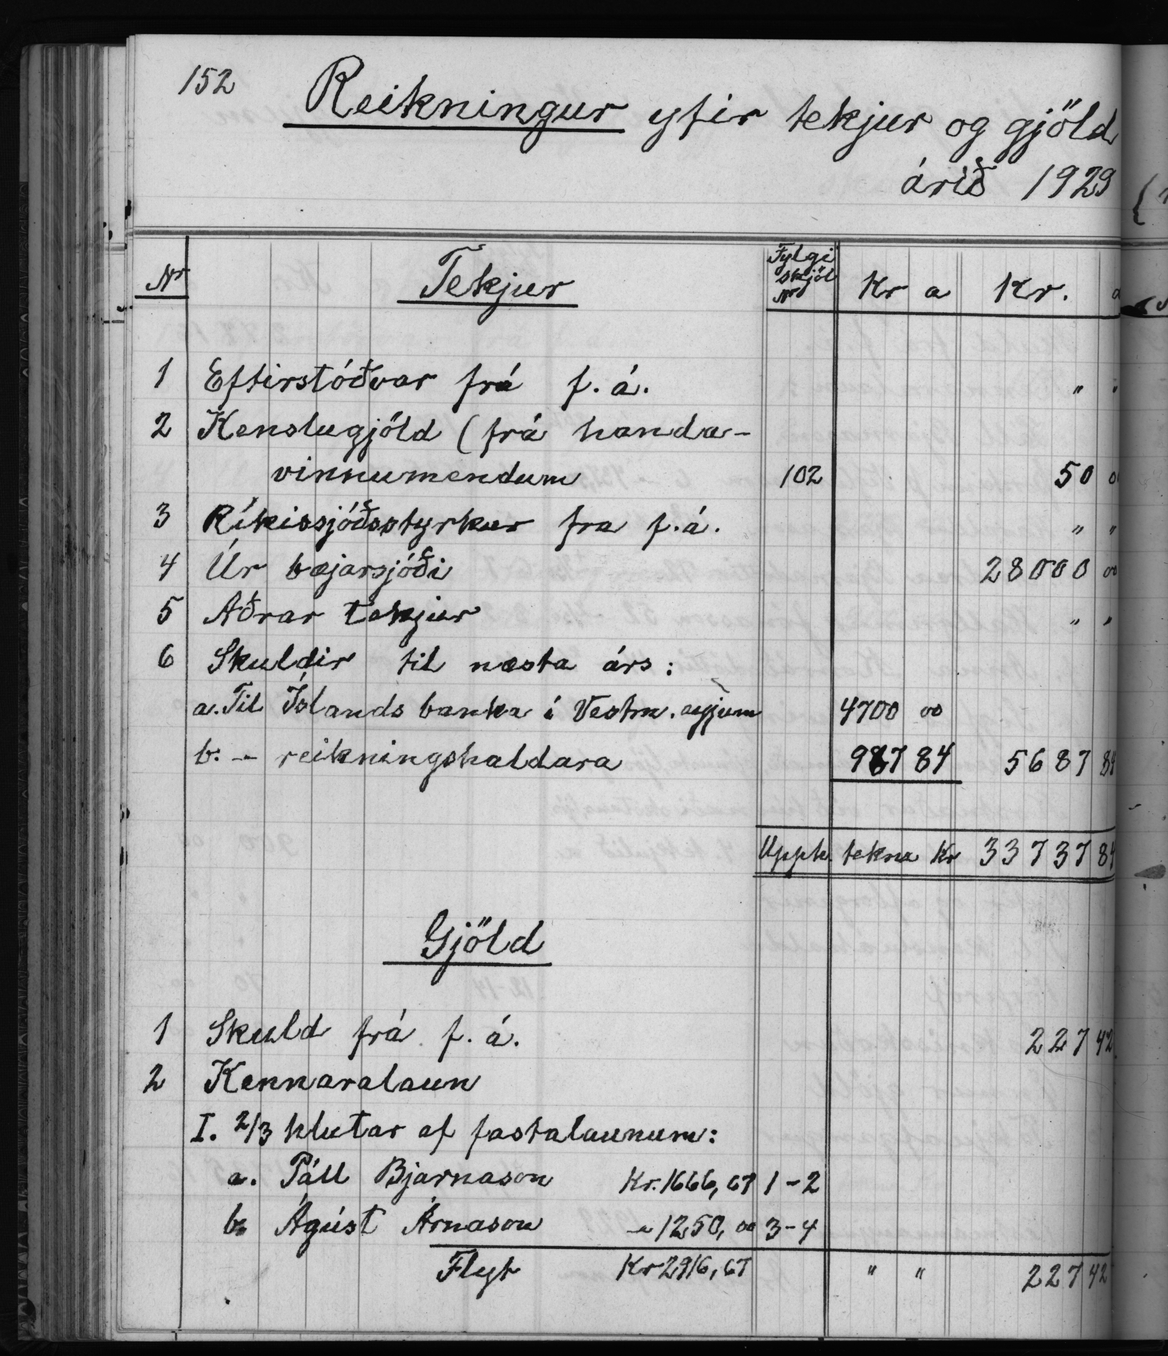 152
Reikningur yfir tekjur og gjöld
árið 1929
Nr Tekjur Fylgi skjöl Nr Kr a Kr. a
1 Eftirstöðvar frá f. á. " "
2 Kenslugjöld (frá handa-
vinnumendum 102 50 00
3 Ríkissjóðsstyrkur fra f.á. " "
4 Úr bæjarsjóði 28000 00
5 Aðrar tekjur " "
6 Skuldir til næsta árs:
a. Til Íslands banka í Vestm.eyjum 4700 00
b. - reikningshaldara 987 84 5687 84
Upph. tekna Kr 33737 84
Gjöld
1 Skuld frá f. á. 227 42
2 Kennaralaun
I. 2/3 hlutar af fastalaunum:
a. Páll Bjarnason Kr. 1666,67 1-2
b. Ágúst Árnason - 1250,00 3-4
Flyt Kr 2916,67 " " 227 42